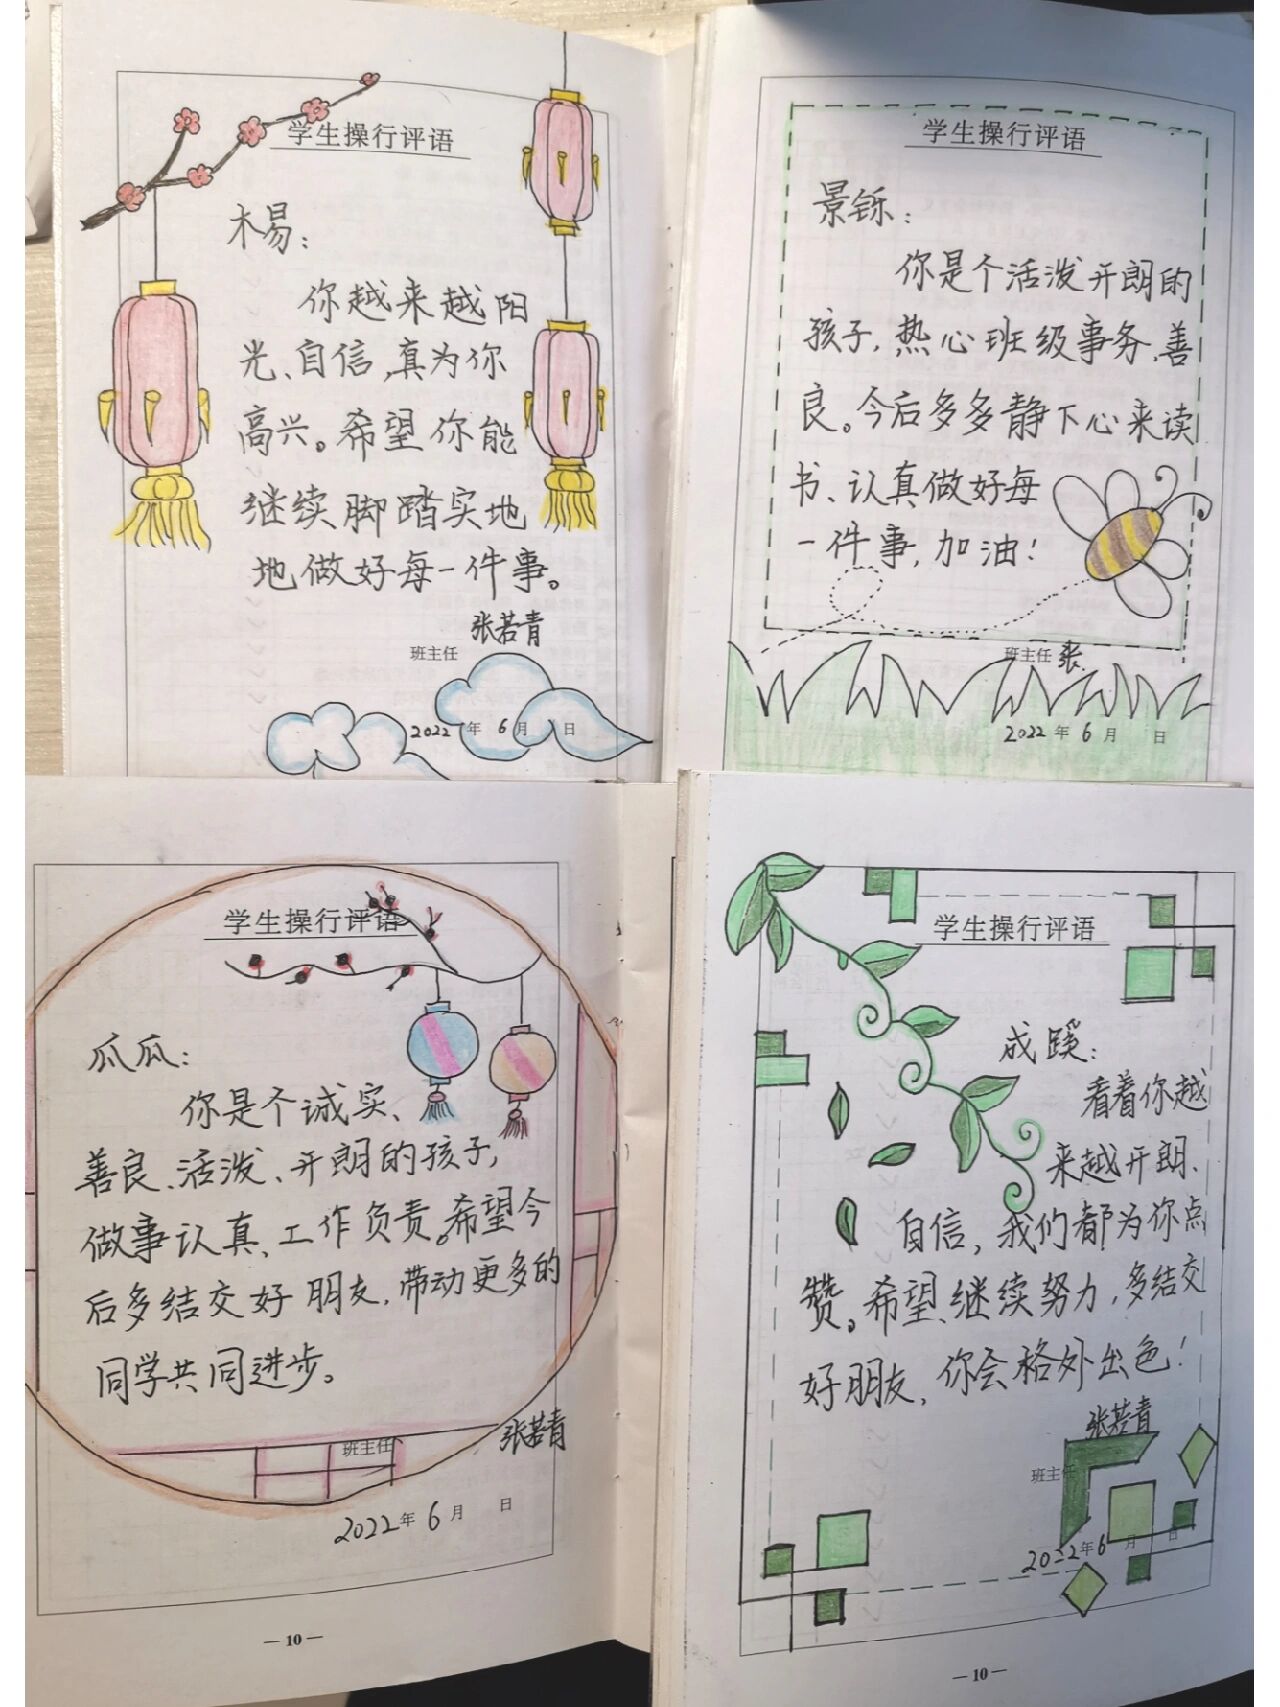 学生操行评语
木易：
你越来越阳
光、自信，真为你
高兴。希望你能
继续脚踏实地
地做好每一件事。
张若青
班主任
2022年 6月 日
学生操行评语
景铄：
你是个活泼开朗的
孩子，热心班级事务，善
良。今后多多静下心来读
书、认真做好每
一件事，加油！
班主任 张
2022年 6月 日
学生操行评语
瓜瓜：
你是个诚实、
善良、活泼、开朗的孩子，
做事认真、工作负责。希望今
后多结交好朋友，带动更多的
同学共同进步。
张若青
班主任
2022年 6月 日
— 10 —
学生操行评语
成蹊：
看着你越
来越开朗、
自信，我们都为你点
赞。希望继续努力，多结交
好朋友，你会格外出色！
张若青
班主任
2022年6月 日
— 10 —